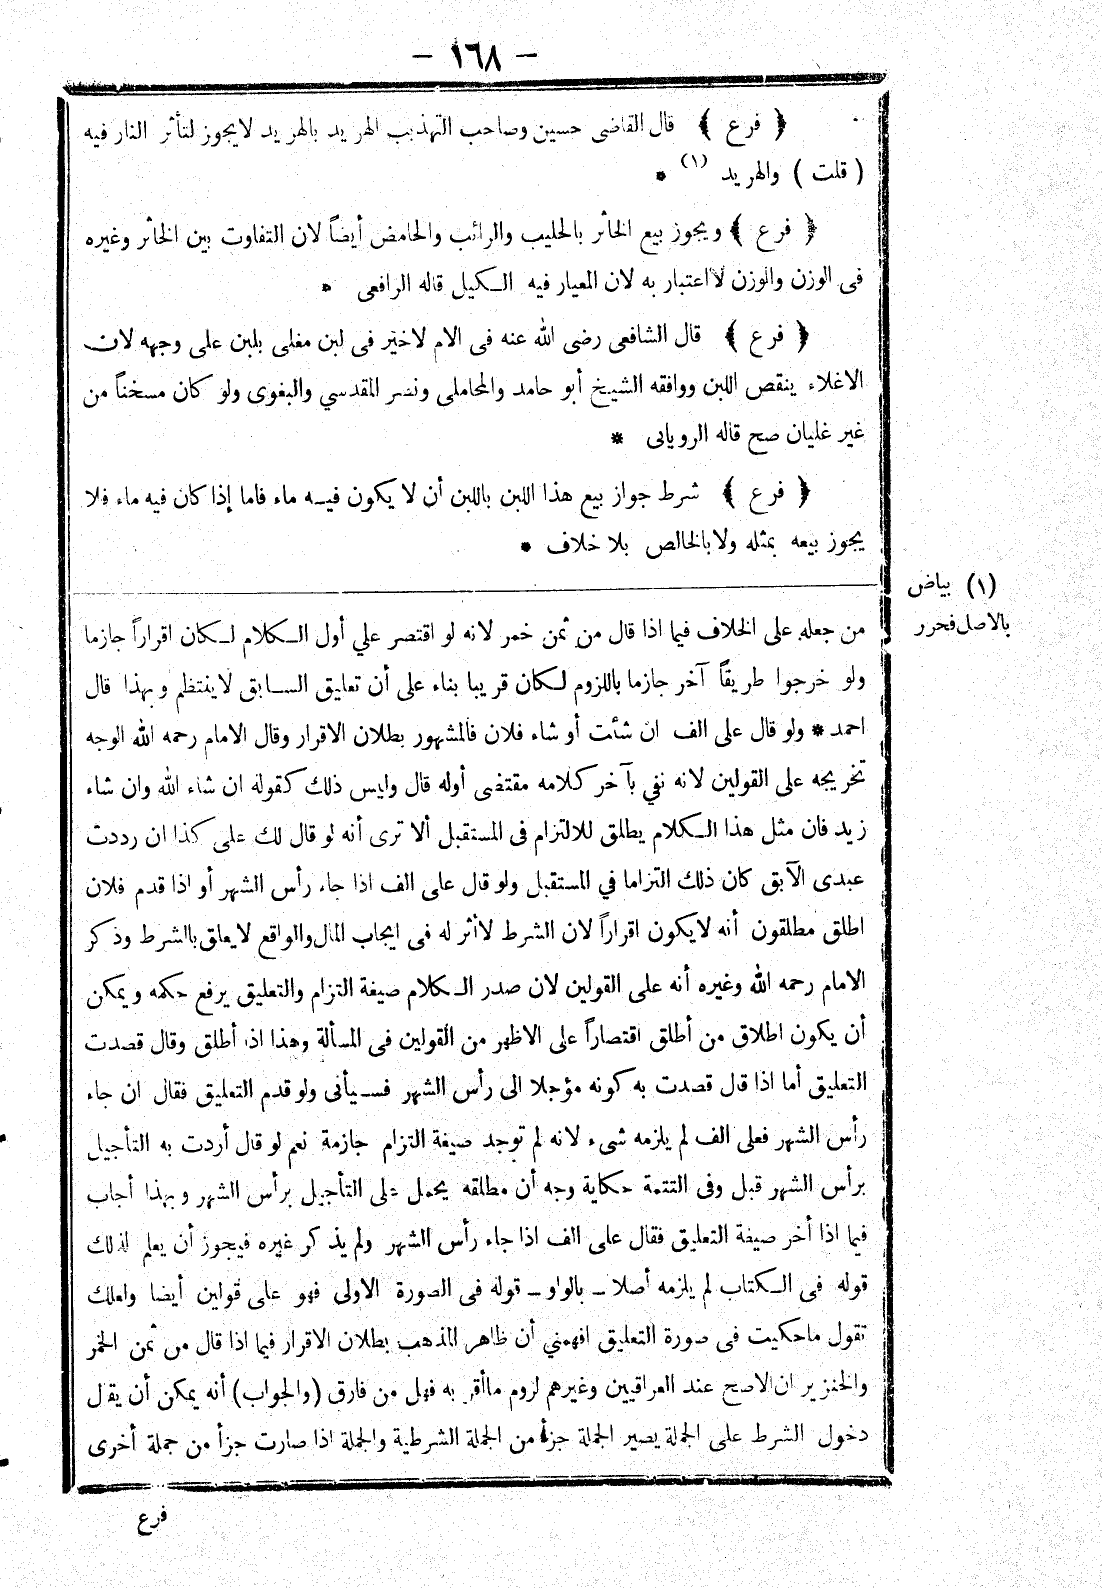 - ١٦٨ -
﴿ فرع ﴾ قال القاضى حسين وصاحب التهذيب الهريد بالهريد لايجوز لتأثر النار فيه
( قلت ) والهريد (١) *
﴿ فرع ﴾ ويجوز بيع الخائر بالحليب والرائب والحامض أيضاً لان التفاوت بين الخائر وغيره
فى الوزن والوزن لااعتبار به لان المعيار فيه الـكيل قاله الرافعى *
﴿ فرع ﴾ قال الشافعى رضى الله عنه فى الام لاخير فى لبن مغلى بلبن على وجهه لان
الاغلاء ينقص اللبن ووافقه الشيخ أبو حامد والمحاملى ونصر المقدسي والبغوى ولو كان مسخناً من
غير غليان صح قاله الرويانى *
﴿ فرع ﴾ شرط جواز بيع هذا اللبن باللبن أن لا يكون فيـه ماء فاما إذا كان فيه ماء فلا
يجوز بيعه بمثله ولابالخالص بلا خلاف *
(١) بياض
بالاصل فحرر
من جعله على الخلاف فيما اذا قال من ثمن خمر لانه لو اقتصر علي أول الـكلام لـكان اقراراً جازما
ولو خرجوا طريقاً آخر جازما باللزوم لـكان قريبا بناء على أن تعليق السـابق لاينتظم وبهذا قال
احمد * ولو قال على الف ان شئت أو شاء فلان فالمشهور بطلان الاقرار وقال الامام رحمه الله الوجه
تخريجه على القولين لانه نفي بآخر كلامه مقتضى أوله قال وليس ذلك كقوله ان شاء الله وان شاء
زيد فان مثل هذا الـكلام يطلق للالتزام فى المستقبل ألا ترى أنه لو قال لك على كذا ان رددت
عبدى الآبق كان ذلك التزاما في المستقبل ولو قال على الف اذا جاء رأس الشهر أو اذا قدم فلان
اطلق مطلقون أنه لايكون اقراراً لان الشرط لاأثر له فى ايجاب المال والواقع لايعلق بالشرط وذكر
الامام رحمه الله وغيره أنه على القولين لان صدر الـكلام صيغة التزام والتعليق يرفع حكمه ويمكن
أن يكون اطلاق من أطلق اقتصاراً على الاظهر من القولين فى المسألة وهذا اذا أطلق وقال قصدت
التعليق أما اذا قال قصدت به كونه مؤجلا الى رأس الشهر فسـيأتى ولو قدم التعليق فقال ان جاء
رأس الشهر فعلى الف لم يلزمه شىء لانه لم توجد صيغة التزام جازمة نعم لو قال أردت به التأجيل
برأس الشهر قبل وفى التتمة حكاية وجه أن مطلقه يحمل على التأجيل برأس الشهر وبهذا أجاب
فيما اذا أخر صيغة التعليق فقال على الف اذا جاء رأس الشهر ولم يذكر غيره فيجوز أن يعلم لذلك
قوله فى الـكتاب لم يلزمه أصلا ـ بالواو ـ قوله فى الصورة الاولى فهو على قولين أيضا ولعلك
تقول ماحكيت فى صورة التعليق افهمني أن ظاهر المذهب بطلان الاقرار فيما اذا قال من ثمن الخمر
والخنزير ان الاصح عند العراقيين وغيرهم لزوم ماأقر به فهل من فارق (والجواب) أنه يمكن أن يقال
دخول الشرط على الجملة يصير الجملة جزأ من الجملة الشرطية والجملة اذا صارت جزأ من جملة أخرى
فرع